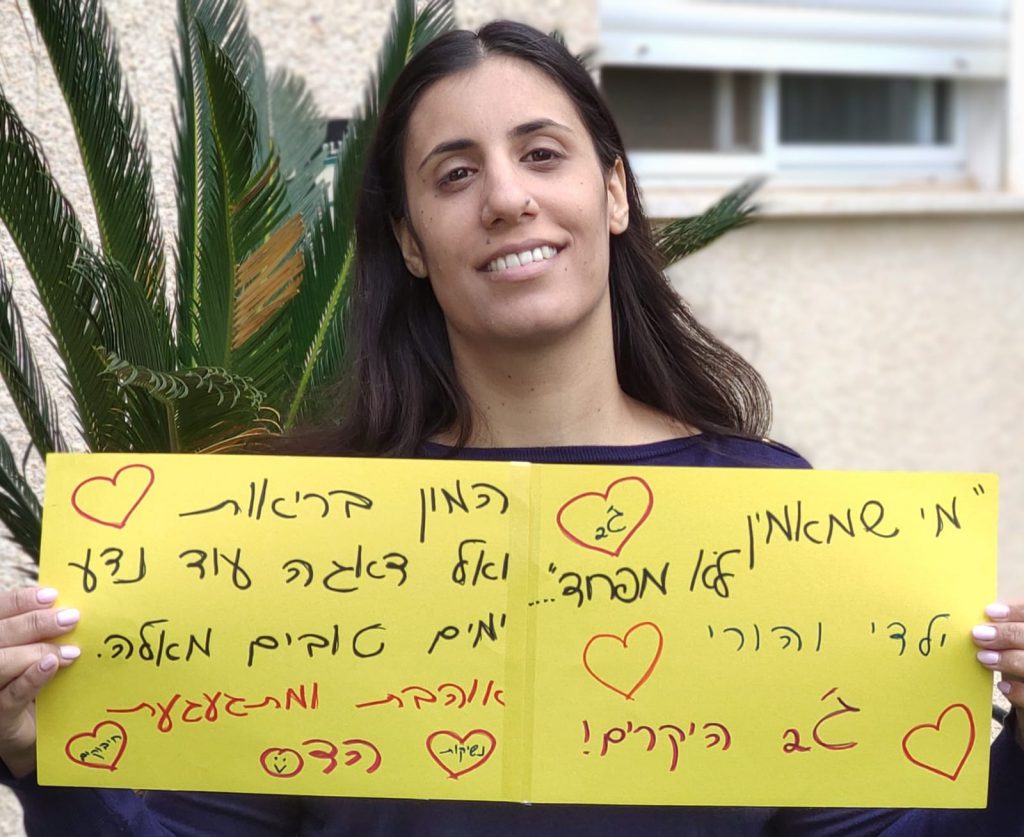 "מי שמאמין
ג'2
לא מפחד"....
ילדי והורי
ג'2 היקרים!
המון בריאות
ואל דאגה עוד נדע
ימים טובים מאלה.
אוהבת ומתגעגעת
הדס
נשיקות
חיבוקים